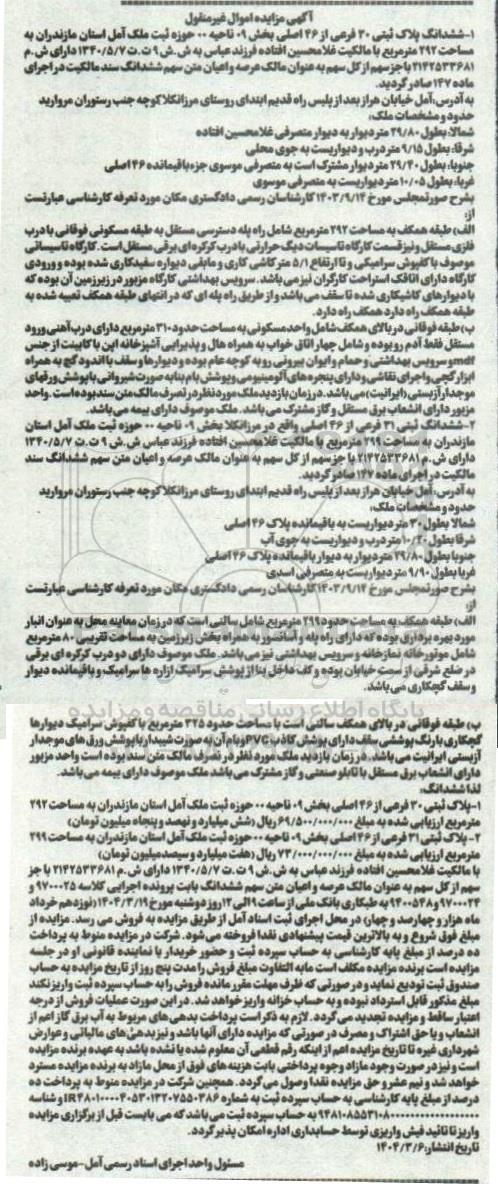 آگهی مزایده اموال غیرمنقول
۱-ششدانگ پلاک ثبتی ۳۰ فرعی از ۴۶ اصلی بخش ۰۹ ناحیه ۰۰ حوزه ثبت ملک آمل استان مازندران به
مساحت ۲۹۲ مترمربع با مالکیت غلامحسین افتاده فرزند عباس به ش.ش ۹ ت.ت ۱۳۴۰/۵/۷ دارای ش.م
۲۱۴۲۵۳۳۶۸۱ با جز سهم از کل سهم به عنوان مالک عرصه و اعیان متن سهم ششدانگ سند مالکیت در اجرای
ماده ۱۴۷ صادر گردید.
به آدرس: آمل خیابان هراز بعد از پلیس راه قدیم ابتدای روستای مرزانکلا کوچه جنب رستوران مروارید
حدود و مشخصات ملک:
شمالا: بطول ۲۹/۸۰ متر دیوار به دیوار متصرفی غلامحسین افتاده
شرقا: بطول ۹/۱۵ متر درب و دیواریست به جوی محلی
جنوبا: بطول ۲۹/۴۰ متر دیوار مشترک است به متصرفی موسوی جزء باقیمانده ۴۶ اصلی
غربا: بطول ۱۰/۰۵ متر دیواریست به متصرفی موسوی
بشرح صورتمجلس مورخ ۱۴۰۳/۹/۱۴ کارشناسان رسمی دادگستری مکان مورد تعرفه کارشناسی عبارتست
از:
الف) طبقه همکف به مساحت ۲۹۲ مترمربع شامل راه پله دسترسی مستقل به طبقه مسکونی فوقانی با درب
فلزی مستقل و نیز قسمت کارگاه تاسیسات دیگ حرارتی با درب کرکره‌ای برقی مستقل است. کارگاه تاسیساتی
موصوف با کفپوش سرامیکی و تا ارتفاع ۵/۱ متر کاشی کاری و مابقی دیواره سفیدکاری شده بوده و ورودی
کارگاه دارای اتاقک استراحت کارگران نیز می‌باشد. سرویس بهداشتی کارگاه مزبور در زیرزمین آن بوده که
با دیوارهای کاشیکاری شده تا سقف می‌باشد و از طریق راه پله ای که در انتهای طبقه همکف تعبیه شده به
طبقه همکف راه دارد همکف راه دارد.
ب) طبقه فوقانی در بالای همکف شامل واحد مسکونی به مساحت حدود ۳۱۰ مترمربع دارای درب آهنی ورود
مستقل فقط آدم رو بوده و شامل چهار اتاق خواب به همراه هال و پذیرایی آشپزخانه اپن با کابینت از جنس
mdf و سرویس بهداشتی و حمام و ایوان بیرونی رو به کوچه عام بوده و دیوارها و سقف با اندود گچ به همراه
ابزار گچی و اجرای نقاشی و دارای پنجره های آلومینیومی و پوشش بام بنا به صورت شیروانی با پوشش ورقهای
موجدار آزبستی (ایرانیت) می‌باشد. در زمان بازدید ملک مورد نظر در تصرف مالک متن سند بوده است. واحد
مزبور دارای انشعاب برق مستقل و گاز مشترک می باشد. ملک موصوف دارای بیمه می‌باشد.
۲-ششدانگ ثبتی ۳۱ فرعی از ۴۶ اصلی واقع در مرزانکلا بخش ۰۹ ناحیه ۰۰ حوزه ثبت ملک آمل استان
مازندران به مساحت ۲۹۹ مترمربع با مالکیت غلامحسین افتاده فرزند عباس ش.ش ۹ ت.ت ۱۳۴۰/۵/۷
دارای ش.م ۲۱۴۲۵۳۳۶۸۱ با جز سهم از کل سهم به عنوان مالک عرصه و اعیان متن سهم ششدانگ سند
مالکیت در اجرای ماده ۱۴۷ صادر گردید.
به آدرس: آمل خیابان هراز بعد از پلیس راه قدیم ابتدای روستای مرزانکلا کوچه جنب رستوران مروارید
حدود و مشخصات ملک:
شمالا بطول ۳۰ متر دیواریست به باقیمانده پلاک ۴۶ اصلی
شرقا بطول ۱۰/۲۰ متر درب و دیواریست به جوی آب
جنوبا بطول ۲۹/۸۰ متر دیوار به دیوار باقیمانده پلاک ۴۶ اصلی
غربا بطول ۹/۹۰ متر دیواریست به متصرفی اسدی
بشرح صورتمجلس مورخ ۱۴۰۳/۹/۱۴ کارشناسان رسمی دادگستری مکان مورد تعرفه کارشناسی عبارتست
از:
الف) طبقه همکف به مساحت حدود ۲۹۹ مترمربع شامل سالنی است که در زمان معاینه محل به عنوان انبار
مورد بهره برداری بوده که دارای راه پله و آسانسور به همراه بخش زیرزمین به مساحت تقریبی ۸۰ مترمربع
شامل موتورخانه نمازخانه و سرویس بهداشتی نیز می باشد. ملک موصوف دارای دو درب کرکره ای برقی
در ضلع شرقی از سمت خیابان بوده و کف داخل بنا از پوشش سرامیک ازاره ها سرامیک و باقیمانده دیوار
و سقف گچکاری می‌باشد.
پایگاه اطلاع رسانی مناقصه و مزایده
ب) طبقه فوقانی در بالای همکف سالنی است با مساحت حدود ۳۲۵ مترمربع با کفپوش سرامیک دیوارها
گچکاری با رنگ پوششی سقف دارای پوشش کاذب PVC و بام آن به صورت شیبدار با پوشش ورق های موجدار
آزبستی ایرانیت می باشد. در زمان بازدید ملک مورد نظر در تصرف مالک متن سند بوده است واحد مزبور
دارای انشعاب برق مستقل با تابلو صنعتی و گاز مشترک می باشد ملک موصوف دارای بیمه می باشد.
لذا ششدانگ:
۱-پلاک ثبتی ۳۰ فرعی از ۴۶ اصلی بخش ۰۹ ناحیه ۰۰ حوزه ثبت ملک آمل استان مازندران به مساحت ۲۹۲
مترمربع ارزیابی شده به مبلغ ۶۹/۵۰۰/۰۰۰/۰۰۰ ریال (شش میلیارد و نهصد و پنجاه میلیون تومان)
۲- پلاک ثبتی ۳۱ فرعی از ۴۶ اصلی بخش ۰۹ ناحیه ۰۰ حوزه ثبت ملک آمل استان مازندران به مساحت ۲۹۹
مترمربع ارزیابی شده به مبلغ ۷۳/۰۰۰/۰۰۰/۰۰۰ ریال (هفت میلیارد و سیصد میلیون تومان)
با مالکیت غلامحسین افتاده فرزند عباس به ش.ش ۹ ت.ت ۱۳۴۰/۵/۷ دارای ش.م ۲۱۴۲۵۳۳۶۸۱ با جز
سهم از کل سهم به عنوان مالک عرصه و اعیان متن سهم ششدانگ بابت پرونده اجرایی کلاسه ۹۷۰۰۰۲۵ و
۹۷۰۰۰۲۴ و ۹۴۰۰۵۴۸ به طلبکاری بانک ملی از ساعت ۹ الی ۱۲ روز دوشنبه مورخ ۱۴۰۴/۳/۱۹ (نوزدهم خرداد
ماه هزار و چهارصد و چهار) در محل اجرای ثبت اسناد آمل از طریق مزایده به فروش می رسد. مزایده از
مبلغ فوق شروع و به بالاترین قیمت پیشنهادی نقدا فروخته می شود. شرکت در مزایده منوط به پرداخت
ده درصد از مبلغ پایه کارشناسی به حساب سپرده ثبت و حضور خریدار یا نماینده قانونی او در جلسه
مزایده است برنده مزایده مکلف است مابه التفاوت مبلغ فروش را مدت پنج روز از تاریخ مزایده به حساب
صندوق ثبت تودیع نماید و در صورتی که ظرف مهلت مقرر مانده فروش را به حساب سپرده ثبت واریز نکند
مبلغ مذکور قابل استرداد نبوده و به حساب خزانه واریز خواهد شد. در این صورت عملیات فروش از درجه
اعتبار ساقط و مزایده تجدید می گردد. لازم به ذکر است پرداخت بدهی های مربوط به آب برق گاز اعم از
انشعاب و یا حق اشتراک و مصرف در صورتی که مزایده دارای آنها باشد و نیز بدهی های مالیاتی و عوارض
شهرداری غیره تا تاریخ مزایده اعم از اینکه رقم قطعی آن معلوم شده یا نشده باشد به عهده برنده مزایده
است و نیز در صورت وجود مازاد وجوه پرداختی بابت هزینه های فوق از محل مازاد به برنده مزایده مسترد
خواهد شد و نیم عشر و حق مزایده نقدا وصول می گردد. همچنین شرکت در مزایده منوط به پرداخت ده
درصد از مبلغ پایه کارشناسی به حساب سپرده ثبت به شماره
به حساب سپرده ثبت می باشد که می بایست قبل از برگزاری مزایده
واریز تا تائید فیش واریزی توسط حسابداری اداره امکان پذیر گردد.
تاریخ انتشار: ۱۴۰۴/۳/۶
مسئول واحد اجرای اسناد رسمی آمل-موسی زاده